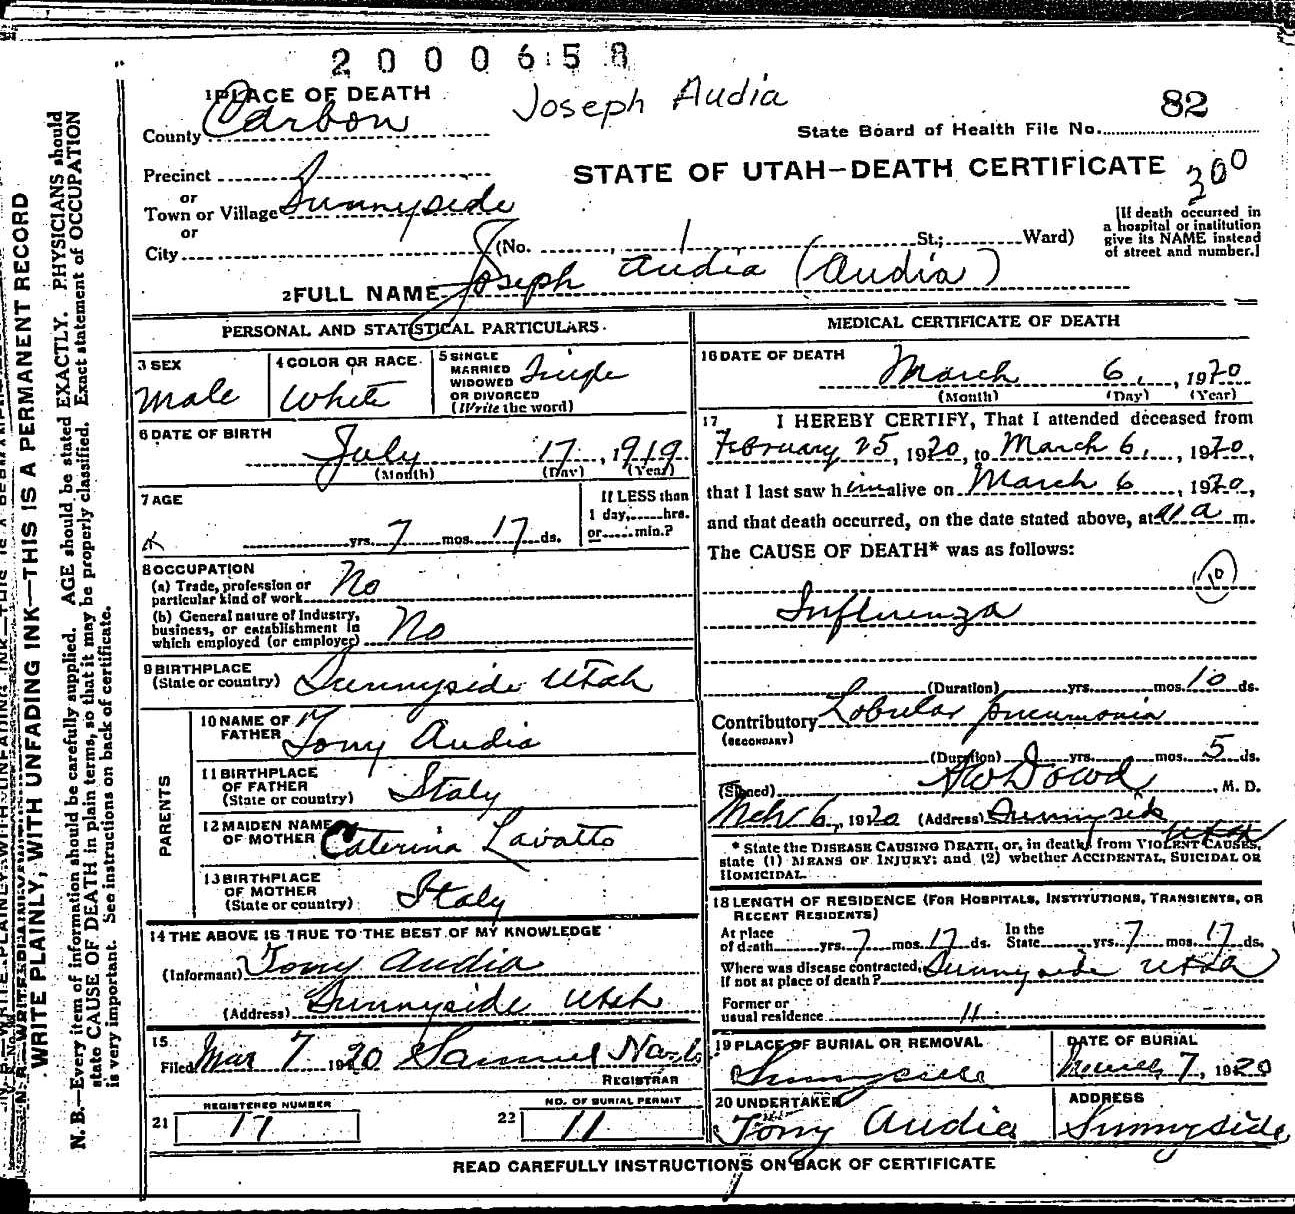 2000658
Joseph Audia
82
1 PLACE OF DEATH
County Carbon
State Board of Health File No.
STATE OF UTAH—DEATH CERTIFICATE
300
Precinct
or
Town or Village Sunnyside
or
City (No. 1 St.; Ward)
[If death occurred in
a hospital or institution
give its NAME instead
of street and number.]
2 FULL NAME Joseph Audia (Audia)
PERSONAL AND STATISTICAL PARTICULARS.
3 SEX
Male
4 COLOR OR RACE.
White
5 SINGLE
MARRIED
WIDOWED
OR DIVORCED
(Write the word)
Single
6 DATE OF BIRTH
July 17, 1919
(Month) (Day) (Year)
7 AGE
yrs. 7 mos. 17 ds.
If LESS than
1 day, hrs.
or min.?
8 OCCUPATION
(a) Trade, profession or
particular kind of work No
(b) General nature of Industry,
business, or establishment in
which employed (or employer) No
9 BIRTHPLACE
(State or country) Sunnyside Utah
PARENTS
10 NAME OF
FATHER Tony Audia
11 BIRTHPLACE
OF FATHER
(State or country) Italy
12 MAIDEN NAME
OF MOTHER Caterina Lavatto
13 BIRTHPLACE
OF MOTHER
(State or country) Italy
14 THE ABOVE IS TRUE TO THE BEST OF MY KNOWLEDGE
(Informant) Tony Audia
(Address) Sunnyside Utah
15
Filed Mar 7 1920 Samuel
REGISTRAR
REGISTERED NUMBER
21 17
NO. OF BURIAL PERMIT
22 11
MEDICAL CERTIFICATE OF DEATH
16 DATE OF DEATH
March 6, 1920
(Month) (Day) (Year)
17 I HEREBY CERTIFY, That I attended deceased from
February 25, 1920, to March 6, 1920,
that I last saw him alive on March 6, 1920,
and that death occurred, on the date stated above, at a m.
The CAUSE OF DEATH* was as follows:
10
Influenza
(Duration) yrs. mos. 10 ds.
Contributory Lobular pneumonia
(SECONDARY)
(Duration) yrs. mos. 5 ds.
(Signed) Dowd, M. D.
Mch 6, 1920 (Address) Sunnyside
Utah
* State the DISEASE CAUSING DEATH, or, in deaths from VIOLENT CAUSES,
state (1) MEANS OF INJURY; and (2) whether ACCIDENTAL, SUICIDAL OR
HOMICIDAL.
18 LENGTH OF RESIDENCE (FOR HOSPITALS, INSTITUTIONS, TRANSIENTS, OR
RECENT RESIDENTS)
At place In the
of death yrs. 7 mos. 17 ds. State yrs. 7 mos. 17 ds.
Where was disease contracted, Sunnyside Utah
If not at place of death?
Former or
usual residence 11
19 PLACE OF BURIAL OR REMOVAL
Sunnyside
DATE OF BURIAL
March 7, 1920
20 UNDERTAKER
Tony Audia
ADDRESS
Sunnyside
READ CAREFULLY INSTRUCTIONS ON BACK OF CERTIFICATE
WRITE PLAINLY, WITH UNFADING INK—THIS IS A PERMANENT RECORD
N. B.—Every item of information should be carefully supplied. AGE should be stated EXACTLY. PHYSICIANS should
state CAUSE OF DEATH in plain terms, so that it may be properly classified. Exact statement of OCCUPATION
is very important. See instructions on back of certificate.